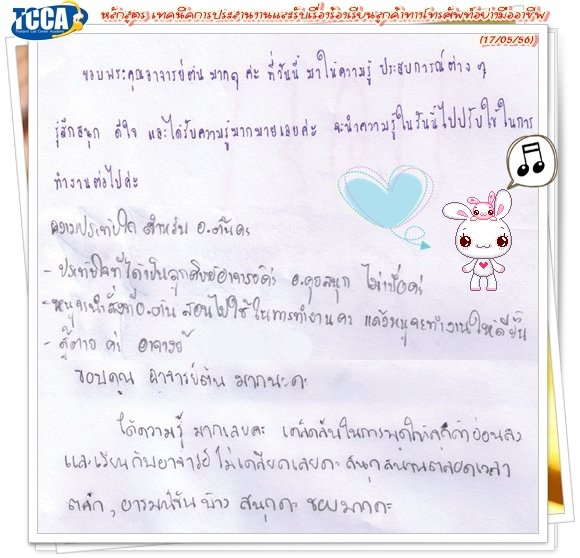 TCCA
Thailand Call Center Academy
หลักสูตร เทคนิคการประสานงานและรับเรื่องร้องเรียนลูกค้าทางโทรศัพท์อย่างมืออาชีพ
(17/05/56)
ขอบพระคุณอาจารย์ต้น มากๆ ค่ะ ที่วันนี้ มาให้ความรู้ ประสบการณ์ต่าง ๆ
รู้สึกสนุก ดีใจ และได้รับความรู้มากมายเลยค่ะ จะนำความรู้ในวันนี้ไปปรับใช้ในการ
ทำงานต่อไปค่ะ
ความประทับใจ สำหรับ อ.ต้นคะ
- ประทับใจที่ได้เป็นลูกศิษย์อาจารย์ค่ะ อ.คุยสนุก ไม่น่าเบื่อค่ะ
- หนูจะนำสิ่งที่อ.ต้น สอนไปใช้ในการทำงานคะ แล้วหนูจะทำงานให้ดีขึ้น
- สู้ตาย ค่ะ อาจารย์
ขอบคุณ อาจารย์ต้น มากนะคะ
ได้ความรู้ มากเลยคะ เคล็ดลับในการพูดให้ลูกค้าอ่อนลง
และเรียนกับอาจารย์ ไม่เครียดเลยคะ สนุกสนานตลอดเวลา
ตลก, อารมณ์ขันบ้าง สนุกคะ ชอบมากคะ